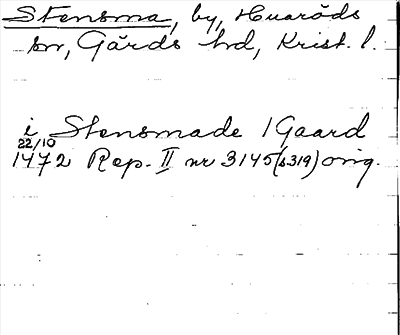 Stensma, by, Huaröds
sn, Gärds hd, Krist. l.
i Stensmade 1 Gaard
22/10
1472 Rep. II nr 3145 (s 319) orig.